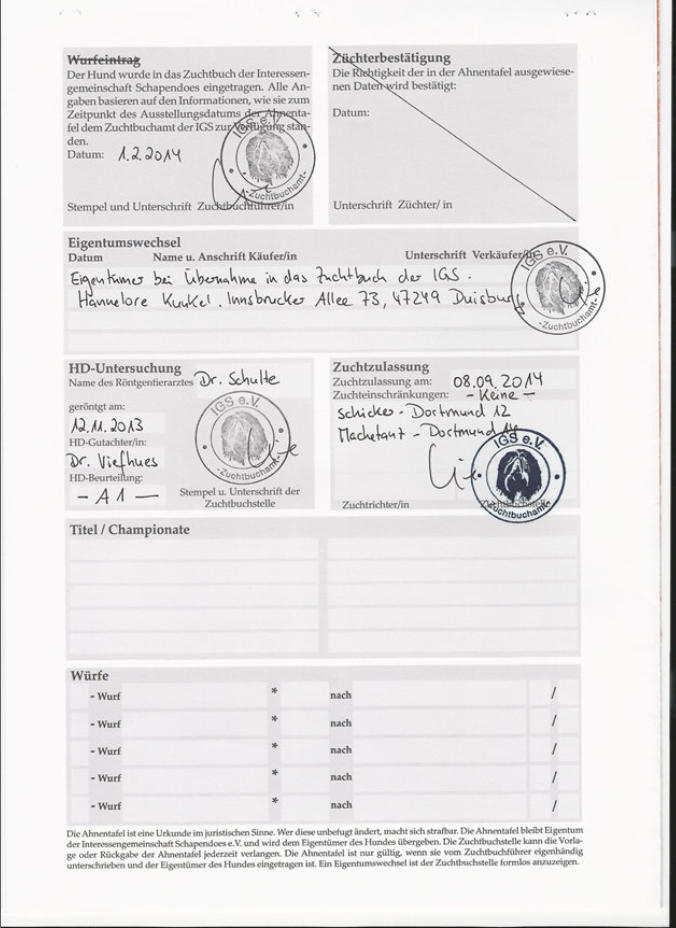 Wurfeintrag
Der Hund wurde in das Zuchtbuch der Interessen-
gemeinschaft Schapendoes eingetragen. Alle An-
gaben basieren auf den Informationen, wie sie zum
Zeitpunkt des Ausstellungsdatums der Ahnenta-
fel dem Zuchtbuchamt der IGS zur Verfügung stan-
den.
Datum: 1.2.2014
IGS e.V.
-Zuchtbuchamt-
Stempel und Unterschrift Zuchtbuchführer/in
Züchterbestätigung
Die Richtigkeit der in der Ahnentafel ausgewiese-
nen Daten wird bestätigt:
Datum:
Unterschrift Züchter/ in
Eigentumswechsel
Datum Name u. Anschrift Käufer/in Unterschrift Verkäufer/in
Eigentümer bei Übernahme in das Zuchtbuch der IGS.
Hannelore Kunkel. Innsbrucker Allee 73, 47249 Duisburg
IGS e.V.
-Zuchtbuchamt-
HD-Untersuchung
Name des Röntgentierarztes Dr. Schulte
geröntgt am:
12.11.2013
HD-Gutachter/in:
Dr. Viefhues
HD-Beurteilung:
- A1 -
IGS e.V.
-Zuchtbuchamt-
Stempel u. Unterschrift der
Zuchtbuchstelle
Zuchtzulassung
Zuchtzulassung am: 08.09.2014
Zuchteinschränkungen: - Keine -
Schicker - Dortmund 12
Machetanz - Dortmund 14
IGS e.V.
Zuchtbuchamt-
Zuchtrichter/in
Titel / Championate
Würfe
- Wurf * nach /
- Wurf * nach /
- Wurf * nach /
- Wurf * nach /
- Wurf * nach /
Die Ahnentafel ist eine Urkunde im juristischen Sinne. Wer diese unbefugt ändert, macht sich strafbar. Die Ahnentafel bleibt Eigentum
der Interessengemeinschaft Schapendoes e.V. und wird dem Eigentümer des Hundes übergeben. Die Zuchtbuchstelle kann die Vorla-
ge oder Rückgabe der Ahnentafel jederzeit verlangen. Die Ahnentafel ist nur gültig, wenn sie vom Zuchtbuchführer eigenhändig
unterschrieben und der Eigentümer des Hundes eingetragen ist. Ein Eigentumswechsel ist der Zuchtbuchstelle formlos anzuzeigen.